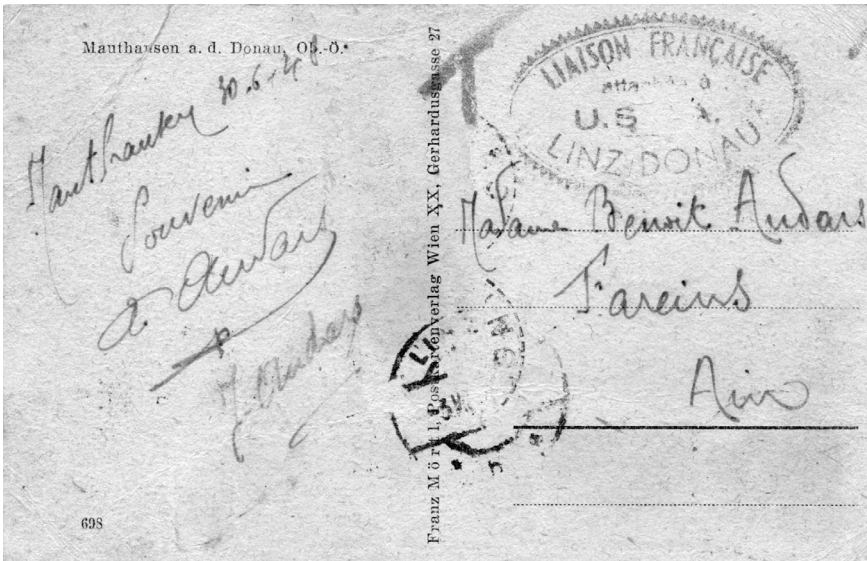 Mauthausen a. d. Donau, Ob.-Ö.
Mauthausen 30.6.48
Souvenir
A. Audars
J. Audars
698
Franz Mörtl, Postkartenverlag Wien XX, Gerhardusgasse 27
T
LIAISON FRANÇAISE
attachée à
U.S
LINZ/DONAU
Madame Benoit Audars
Fareins
Ain